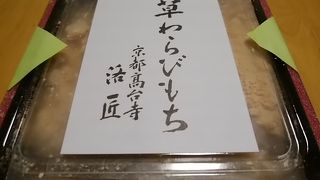 草わらびもち
京都高台寺
洛匠